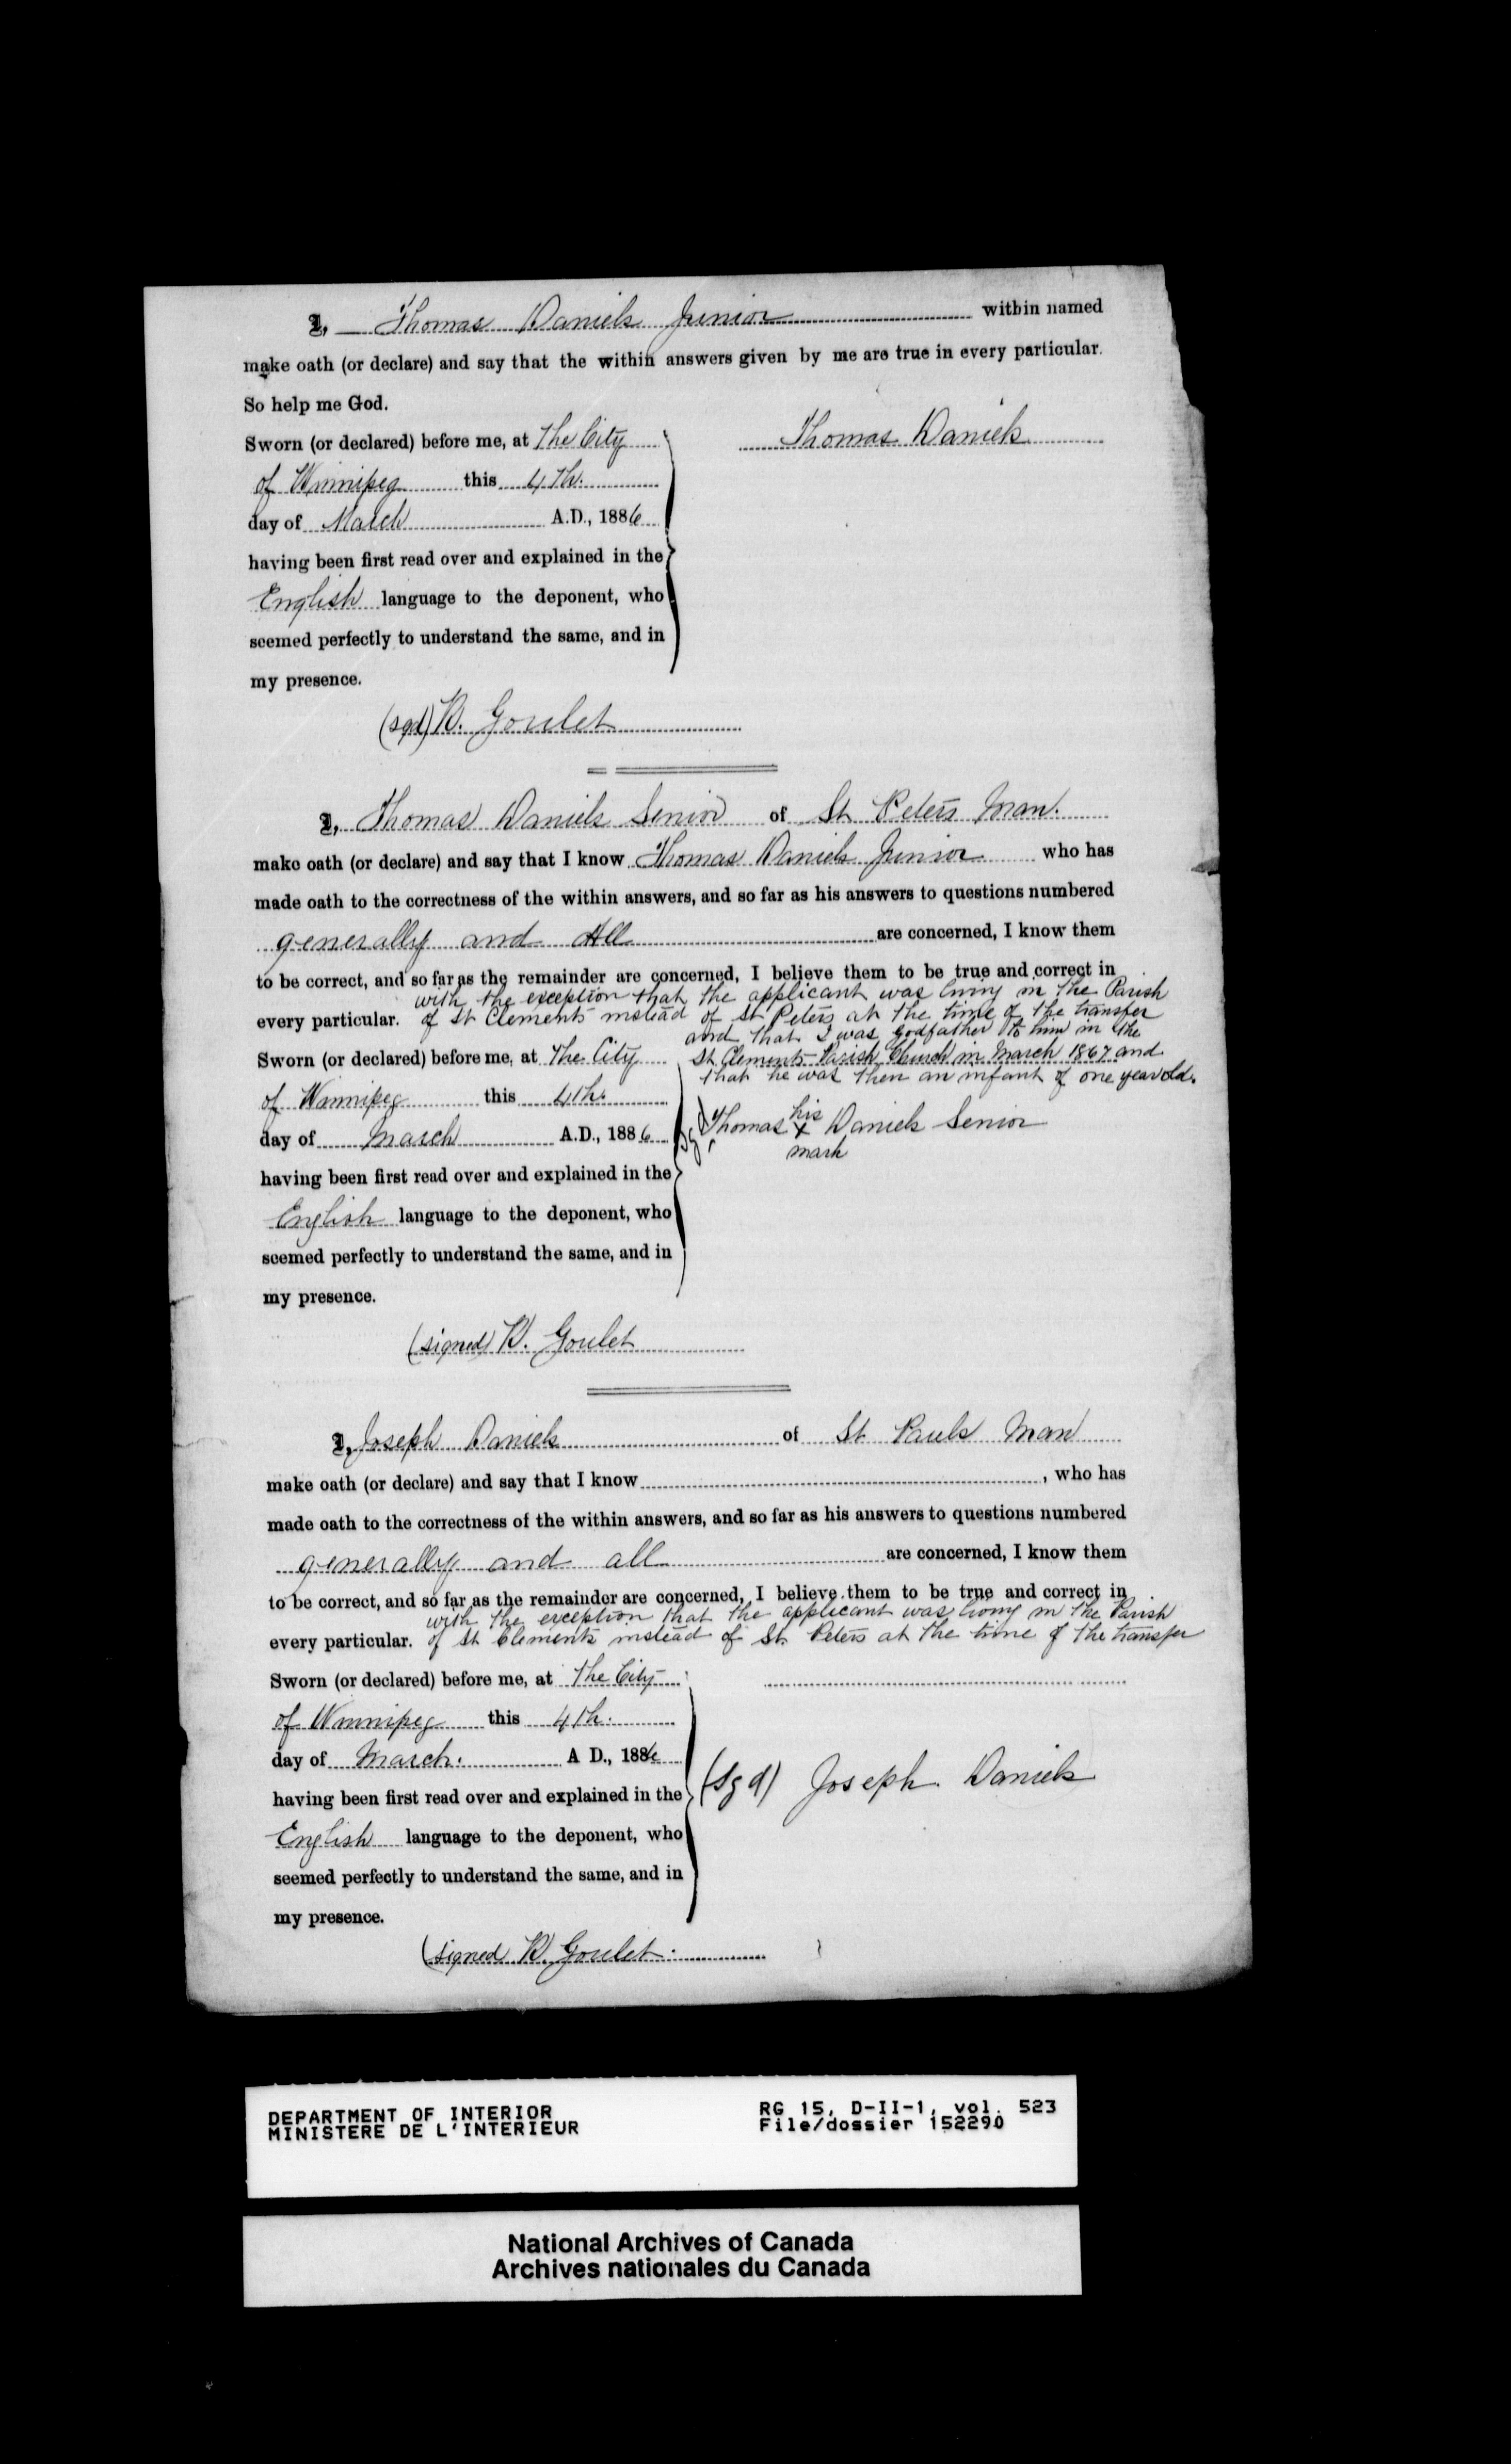 I, Thomas Daniels Junior within named
make oath (or declare) and say that the within answers given by me are true in every particular.
So help me God.
Sworn (or declared) before me, at The City
Thomas Daniels
of Winnipeg this 4th.
day of March A.D., 1886
having been first read over and explained in the
English language to the deponent, who
seemed perfectly to understand the same, and in
my presence.
(sgd) R. Goulet
I, Thomas Daniels Senior of St Peters Man.
make oath (or declare) and say that I know Thomas Daniels Junior who has
made oath to the correctness of the within answers, and so far as his answers to questions numbered
generally and All are concerned, I know them
to be correct, and so far as the remainder are concerned, I believe them to be true and correct in
with the exception that the applicant was living in the Parish
every particular. of St Clements instead of St Peters at the time of the transfer
and that I was godfather to him in the
Sworn (or declared) before me, at The City
St Clements Parish Church in March 1867 and
that he was then an infant of one year old.
of Winnipeg this 4th.
Sgd Thomas his x mark Daniels Senior
day of March A.D., 1886
having been first read over and explained in the
English language to the deponent, who
seemed perfectly to understand the same, and in
my presence.
(signed) R. Goulet
I, Joseph Daniels of St Pauls Man
make oath (or declare) and say that I know , who has
made oath to the correctness of the within answers, and so far as his answers to questions numbered
generally and all are concerned, I know them
to be correct, and so far as the remainder are concerned, I believe them to be true and correct in
with the exception that the applicant was living in the Parish
every particular. of St Clements instead of St. Peters at the time of the transfer
Sworn (or declared) before me, at The City
of Winnipeg this 4th.
day of March. A D., 1886
(Sgd) Joseph Daniels
having been first read over and explained in the
English language to the deponent, who
seemed perfectly to understand the same, and in
my presence.
(signed R. Goulet.
DEPARTMENT OF INTERIOR
MINISTERE DE L'INTERIEUR
RG 15, D-II-1, vol. 523
File/dossier 152290
National Archives of Canada
Archives nationales du Canada